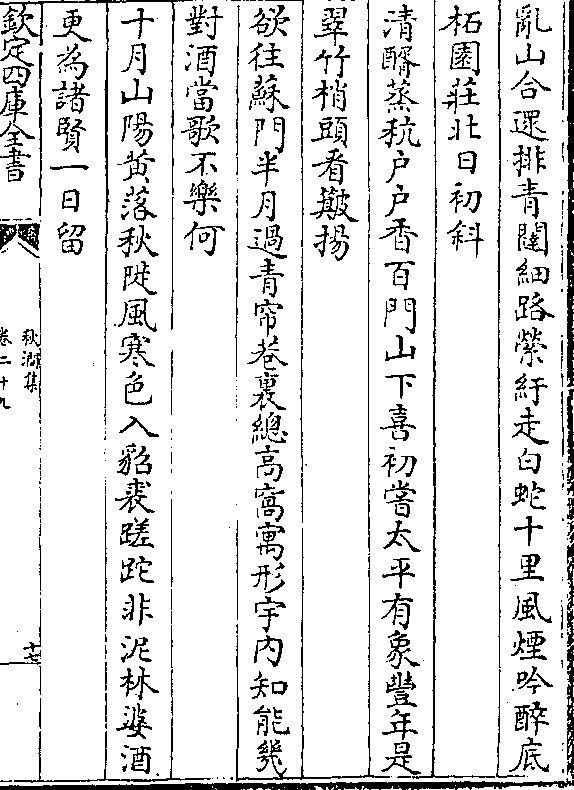 亂山合遝排青闥細路縈紆走白蛇十里風煙吟醉底
柘園莊北日初斜
清醑蒸秔户户香百門山下喜初嘗太平有象豐年是
翠竹梢頭看簸揚
欲往蘇門半月過青帘巷裏總高窩寓形宇内知能幾
對酒當歌不樂何
十月山陽黄落秋陡風寒色入貂裘蹉跎非泥林婆酒
更為諸賢一日留
欽定四庫全書
秋澗集
卷二十九
十七